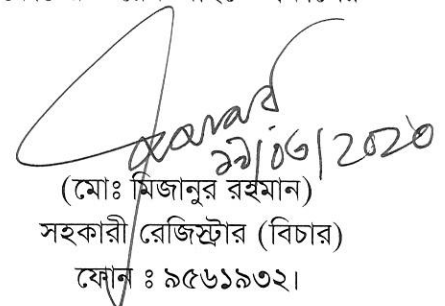 ২৯/০৩/২০২০
(মোঃ মিজানুর রহমান)
সহকারী রেজিস্ট্রার (বিচার)
ফোন ঃ ৯৫৬১৯৩২।